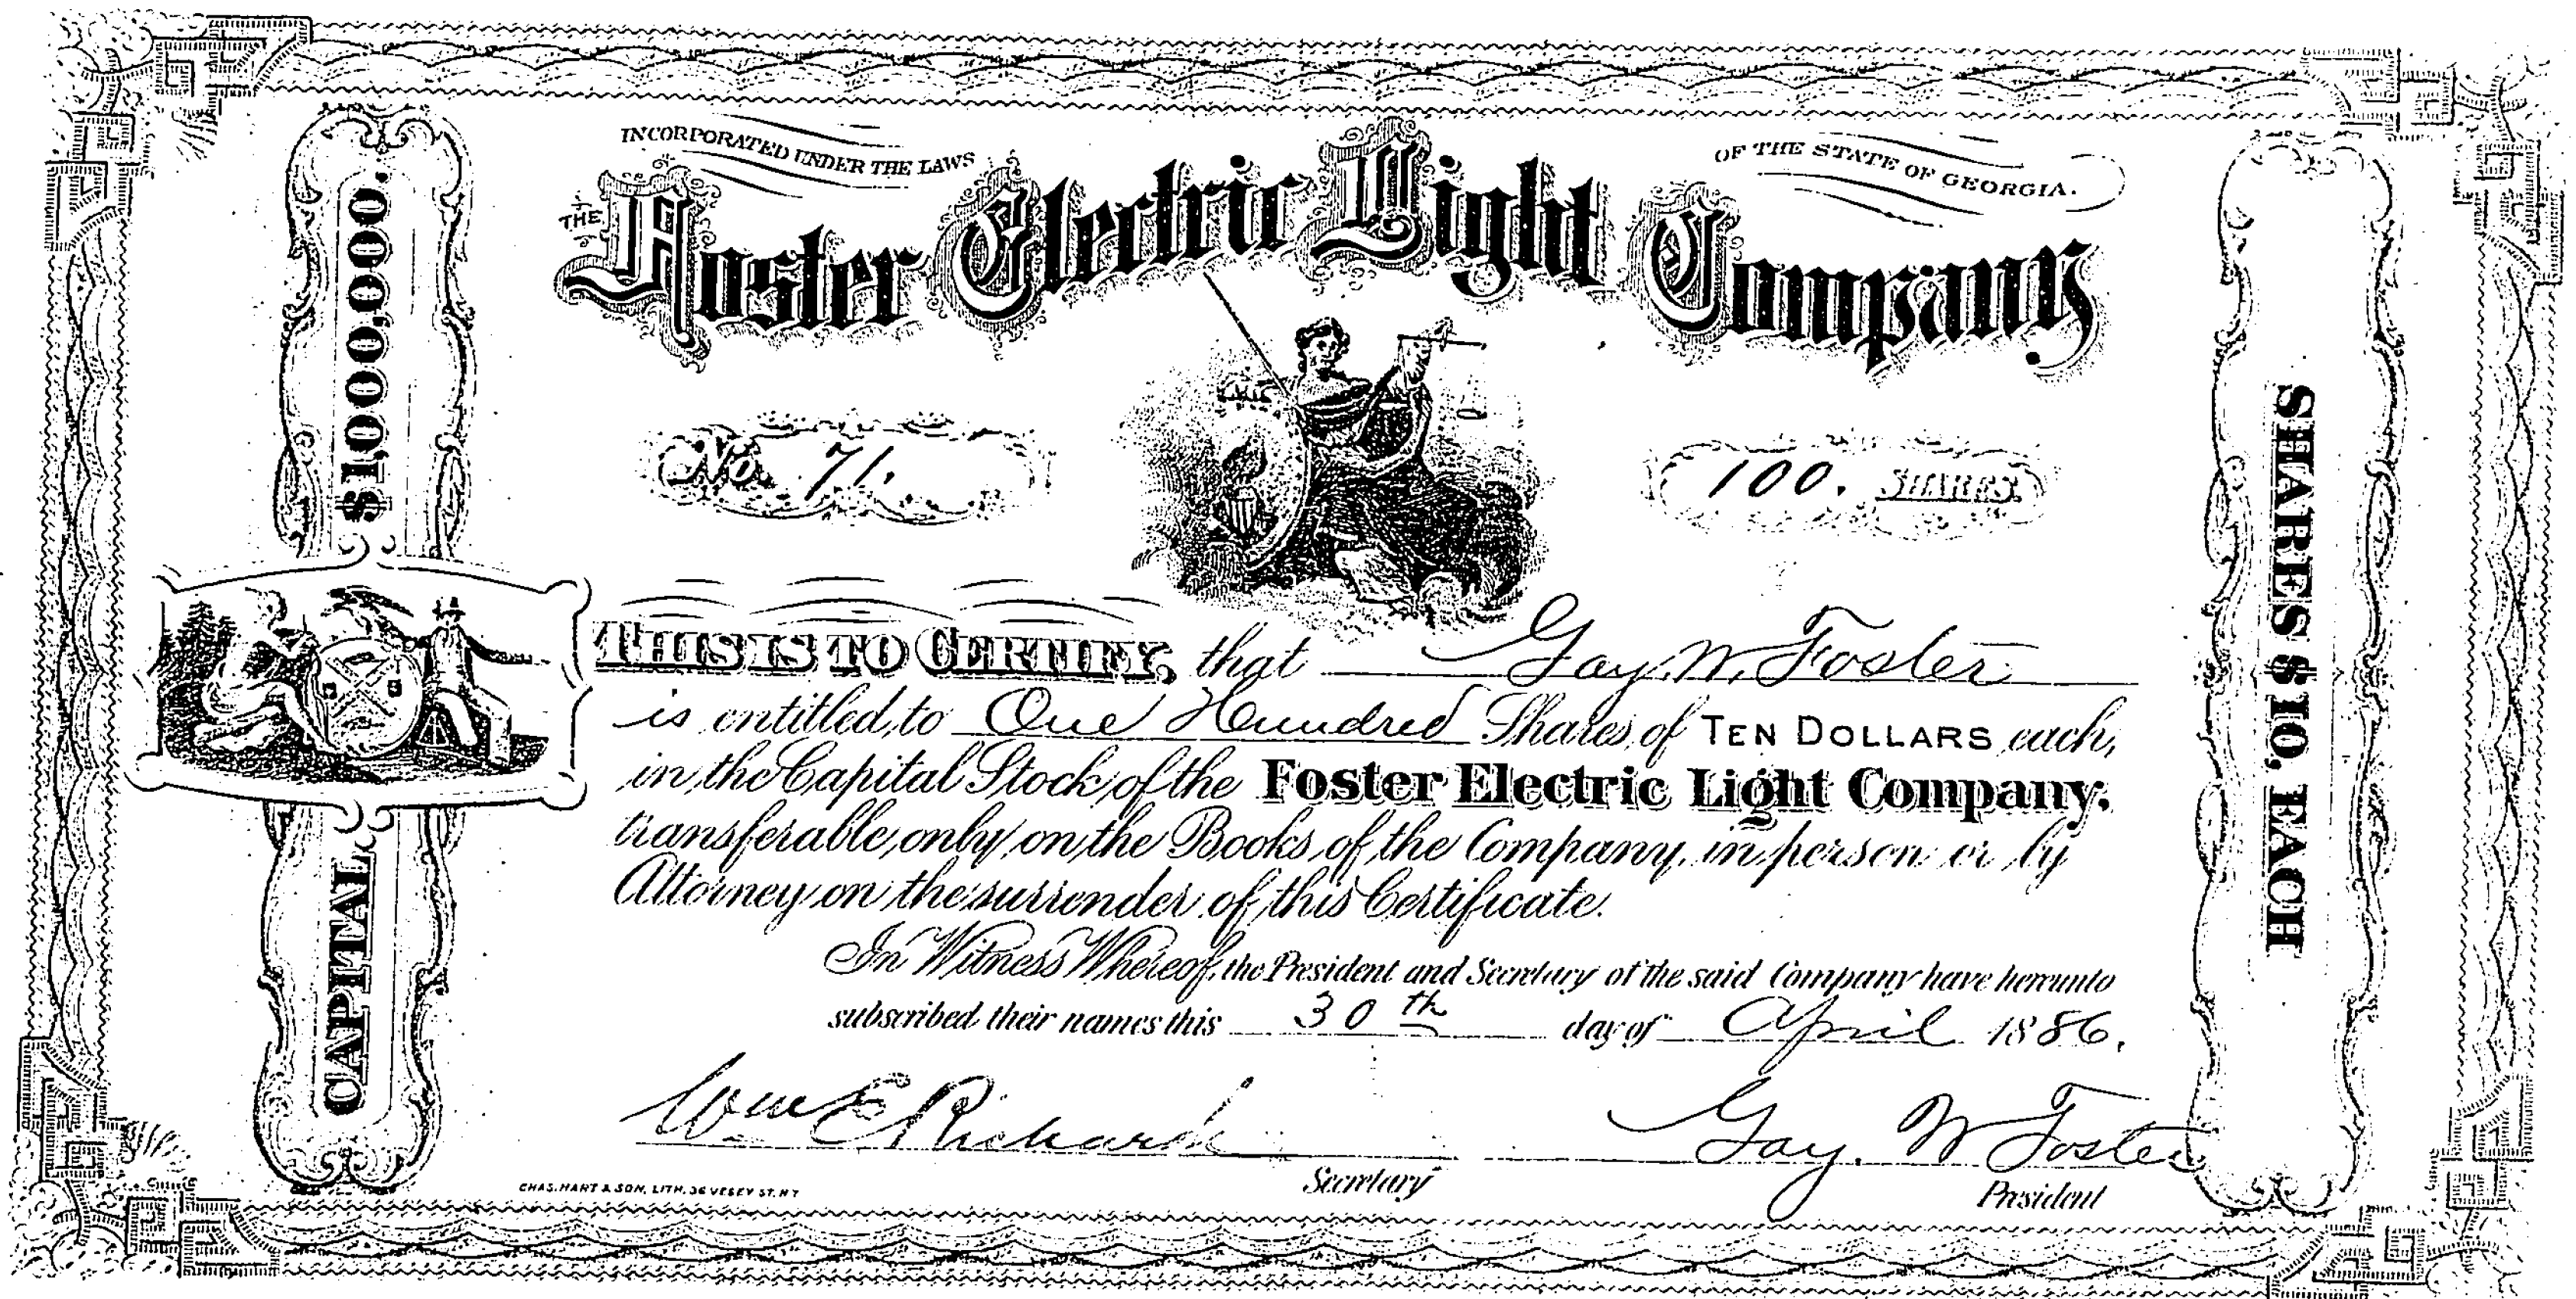 INCORPORATED UNDER THE LAWS
OF THE STATE OF GEORGIA.
THE Foster Electric Light Company
$1,000,000.
CAPITAL
No. 71.
100. SHARES.
THIS IS TO CERTIFY, that Gay. W. Foster
is entitled to One Hundred Shares of TEN DOLLARS each,
in the Capital Stock of the Foster Electric Light Company.
transferable only on the Books of the Company, in person or by
Attorney on the surrender of this Certificate.
In Witness Whereof, the President and Secretary of the said Company have hereunto
subscribed their names this 30th day of April 1886.
Wm E Richards
Secretary
Gay. W Foster
President
CHAS. HART & SON, LITH. 36 VESEY ST. N Y
SHARES $10, EACH